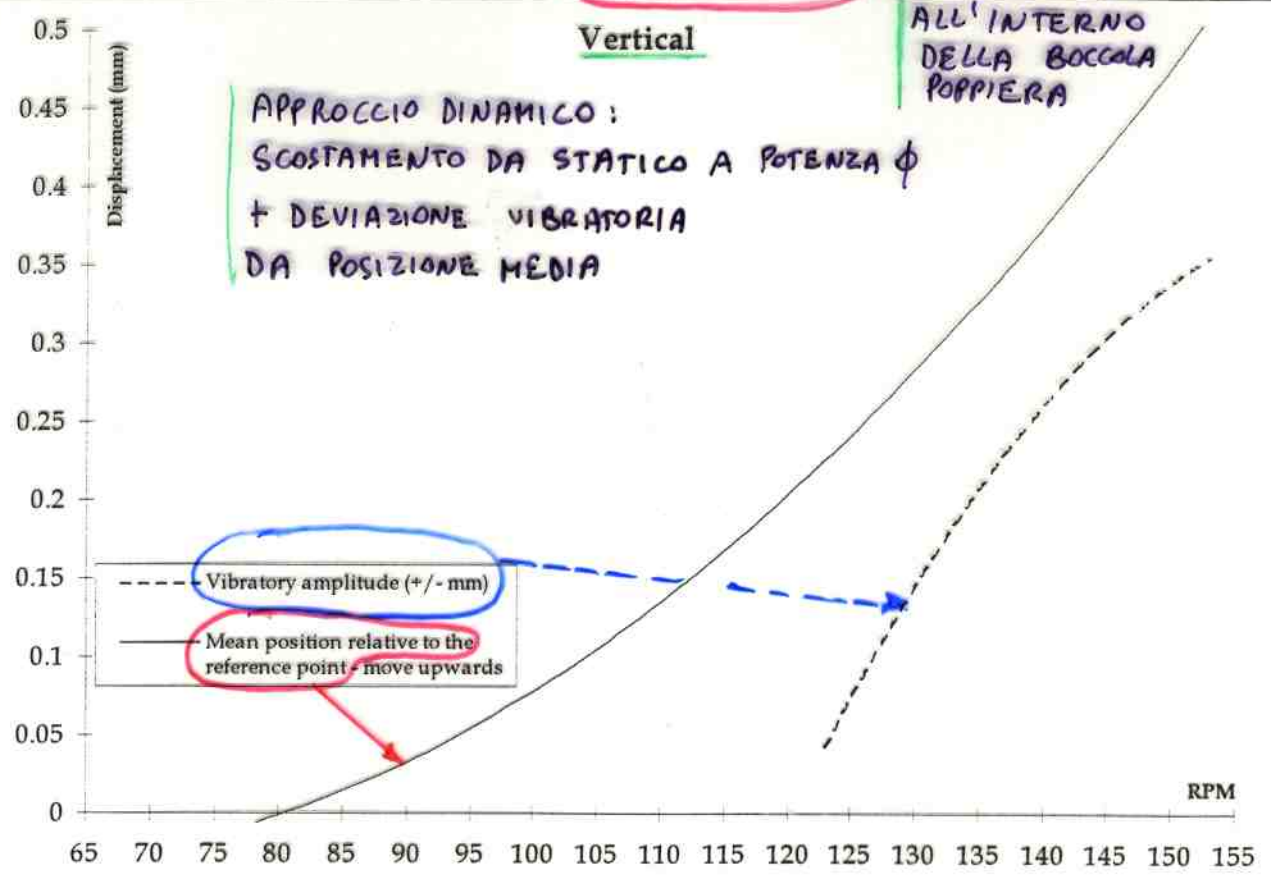 Vertical
ALL'INTERNO
DELLA BOCCOLA
POPPIERA
Displacement (mm)
APPROCCIO DINAMICO:
SCOSTAMENTO DA STATICO A POTENZA ϕ
+ DEVIAZIONE VIBRATORIA
DA POSIZIONE MEDIA
0.5
0.45
0.4
0.35
0.3
0.25
0.2
0.15
0.1
0.05
0
Vibratory amplitude (+/- mm)
Mean position relative to the
reference point - move upwards
RPM
65 70 75 80 85 90 95 100 105 110 115 120 125 130 135 140 145 150 155